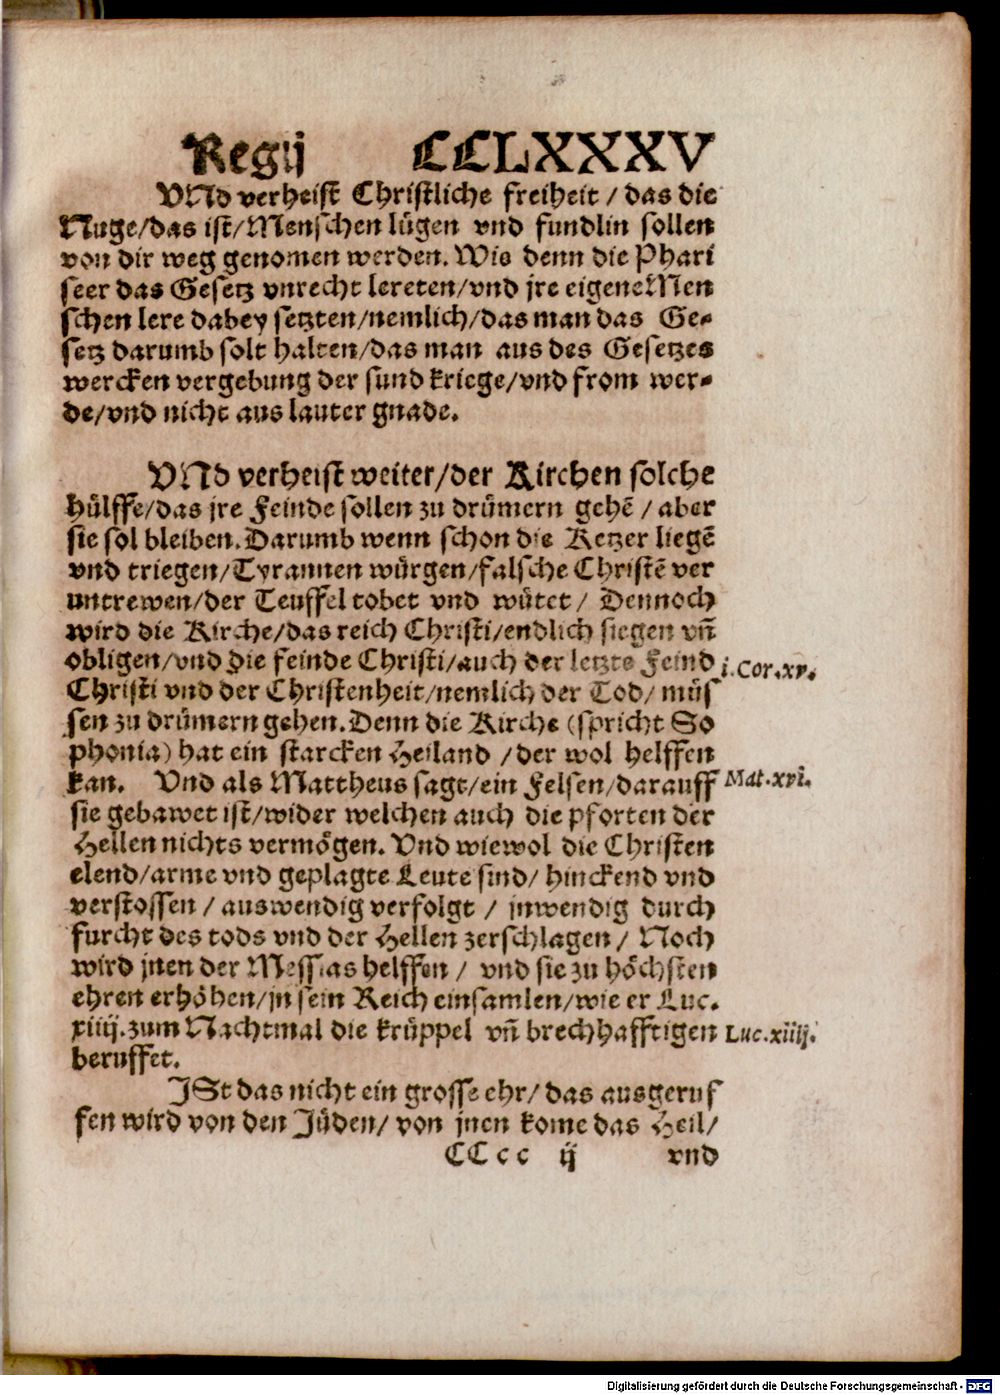 Regij CCLXXXV
VNd verheist Christliche freiheit / das die
Nuge/das ist/Menschen lügen vnd fundlin sollen
von dir weg genomen werden. Wie denn die Phari
seer das Gesetz vnrecht lereten/vnd jre eigene Men
schen lere dabey setzten/nemlich/das man das Ge-
setz darumb solt halten/das man aus des Gesetzes
wercken vergebung der sund kriege/vnd from wer-
de/vnd nicht aus lauter gnade.
VNd verheist weiter/der Kirchen solche
hülffe/das jre Feinde sollen zu drümern gehẽ / aber
sie sol bleiben. Darumb wenn schon die Ketzer liegẽ
vnd triegen/Tyrannen würgen/falsche Christẽ ver
untrewen/der Teuffel tobet vnd wütet / Dennoch
wird die Kirche/das reich Christi/endlich siegen vñ
obligen/vnd die feinde Christi/auch der letzte Feind
i.Cor.xv.
Christi vnd der Christenheit/nemlich der Tod/ müs
sen zu drümern gehen. Denn die Kirche (spricht So
phonia) hat ein starcken Heiland / der wol helffen
kan. Vnd als Mattheus sagt/ein Felsen/darauff
Mat.xvi.
sie gebawet ist/wider welchen auch die pforten der
Hellen nichts vermögen. Vnd wiewol die Christen
elend/arme vnd geplagte Leute sind/ hinckend vnd
verstossen / auswendig verfolgt / jnwendig durch
furcht des tods vnd der Hellen zerschlagen / Noch
wird jnen der Messias helffen / vnd sie zu höchsten
ehren erhöhen/jn sein Reich einsamlen/wie er Luc.
xiiij. zum Nachtmal die krüppel vñ brechhafftigen
Luc.xiiij.
beruffet.
JSt das nicht ein grosse ehr/ das ausgeruf
fen wird von den Jüden/ von jnen kome das Heil/
CC c c ij vnd
Digitalisierung gefördert durch die Deutsche Forschungsgemeinschaft - DFG